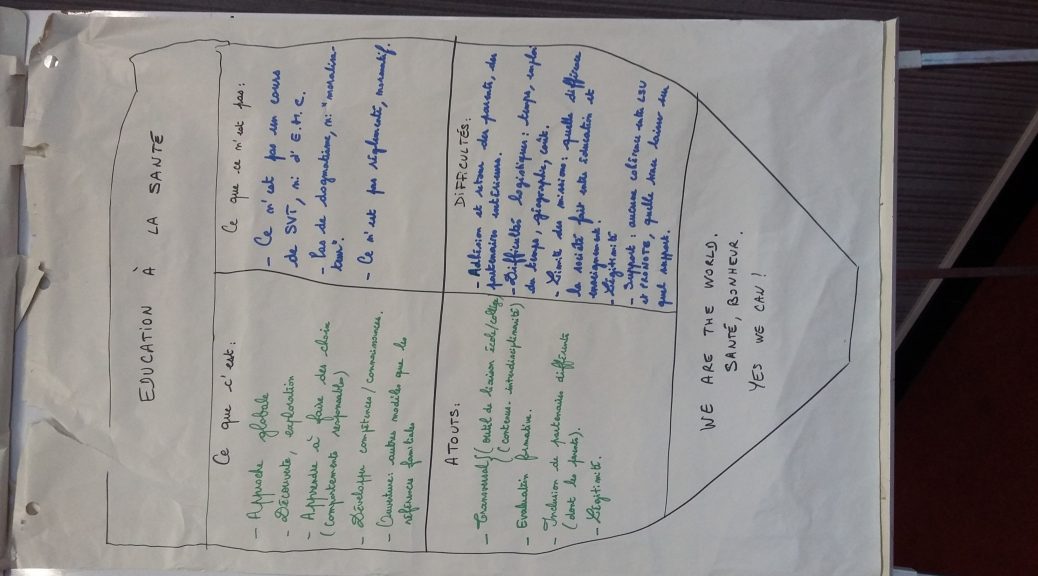 EDUCATION À LA SANTÉ
Ce que c'est:
- Approche globale
- Découverte, exploration
- Apprendre à faire des choix
(comportements responsables)
- Développer compétences/connaissances.
- Ouverture: autres modèles que les
références familiales
Ce que ce n'est pas:
- Ce n'est pas un cours
de SVT, ni d'E.M.C.
- Pas de dogmatisme, ni "moralisa-
teur".
- Ce n'est pas réglementé, normatif.
ATOUTS:
- Transversal } (outil de liaison école/collège
(contenus: interdisciplinarité)
- Evaluation formative.
- Inclusion de partenaires différents
(dont les parents).
- Légitimité.
DIFFICULTÉS:
- Adhésion et retour des parents, des
partenaires extérieurs.
- Difficultés logistiques: temps, emploi
du temps, géographie, coûts.
- Limite des missions: quelle différence
la société fait entre éducation et
enseignement?
- Légitimité
- Support: aucune colonne entre LSU
et FOLIOS, quelle trace laisser sur
quel support.
WE ARE THE WORLD.
SANTÉ, BONHEUR.
YES WE CAN!